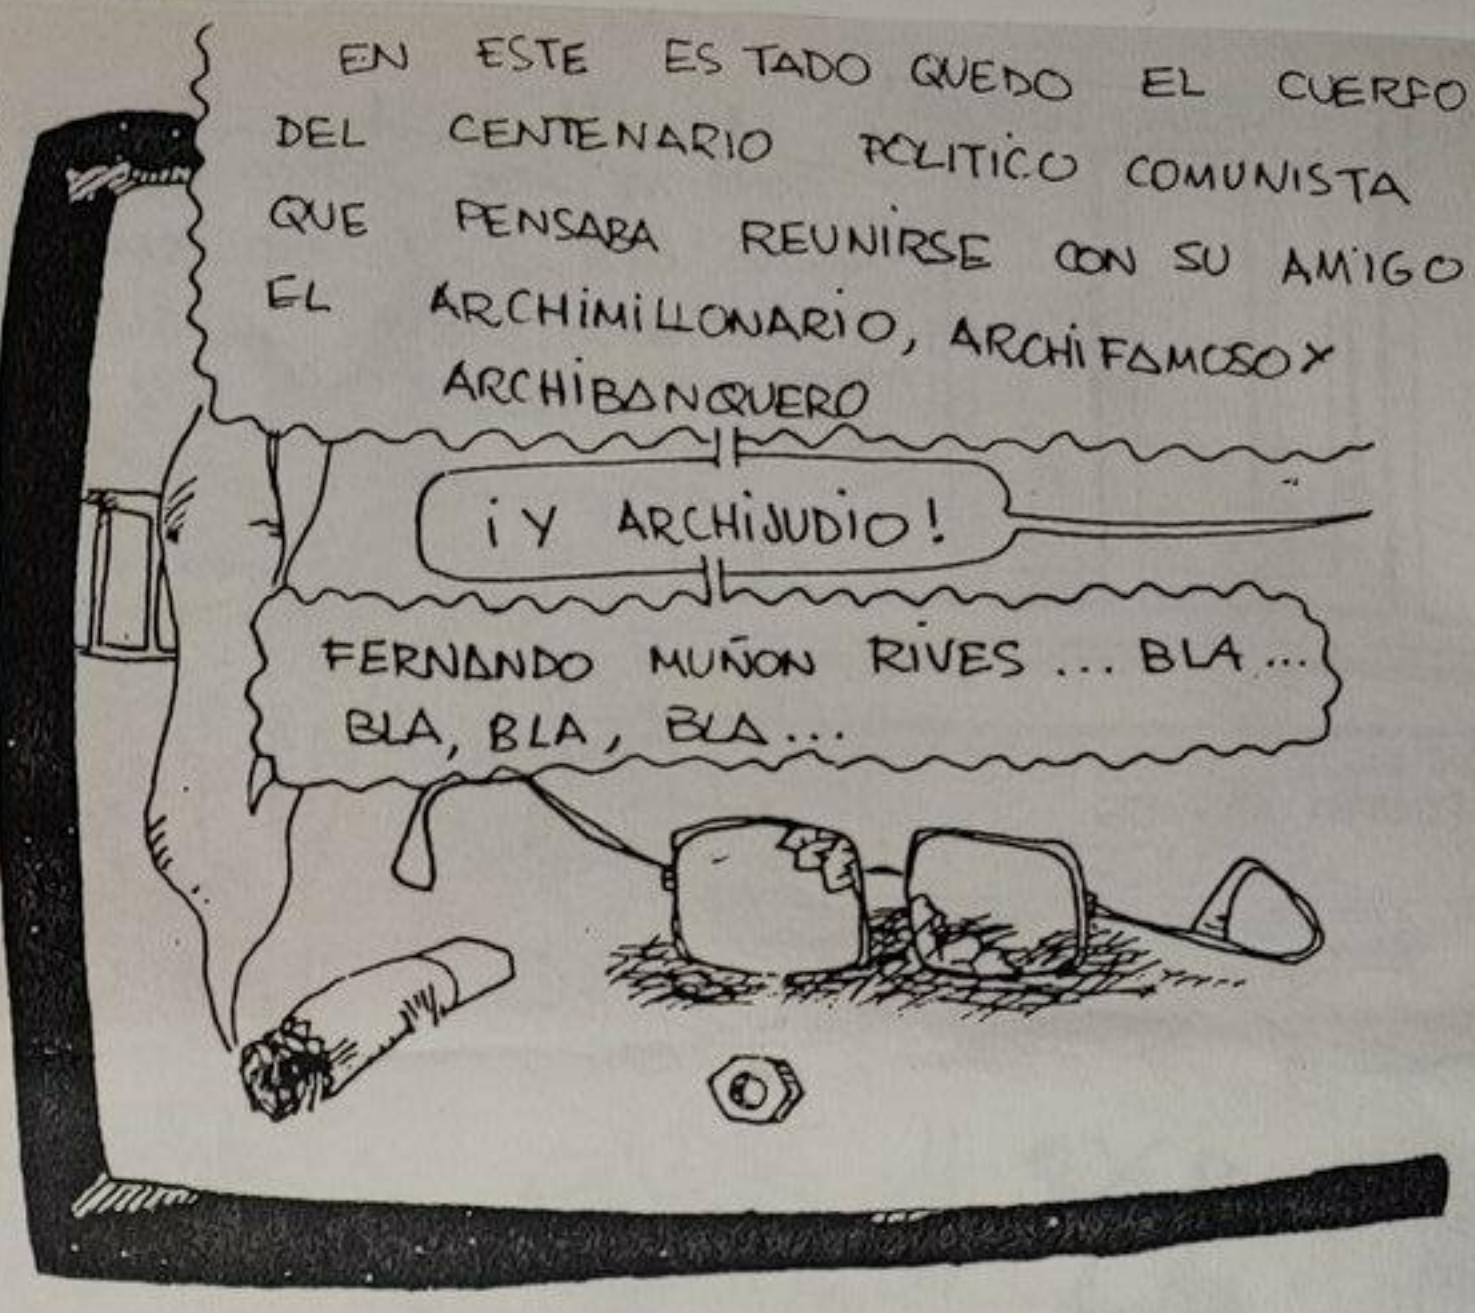 EN ESTE ESTADO QUEDO EL CUERPO
DEL CENTENARIO POLITICO COMUNISTA
QUE PENSABA REUNIRSE CON SU AMIGO
EL ARCHIMILLONARIO, ARCHIFAMOSO Y
ARCHIBANQUERO
¡Y ARCHIJUDIO!
FERNANDO MUÑON RIVES ... BLA ...
BLA, BLA, BLA...